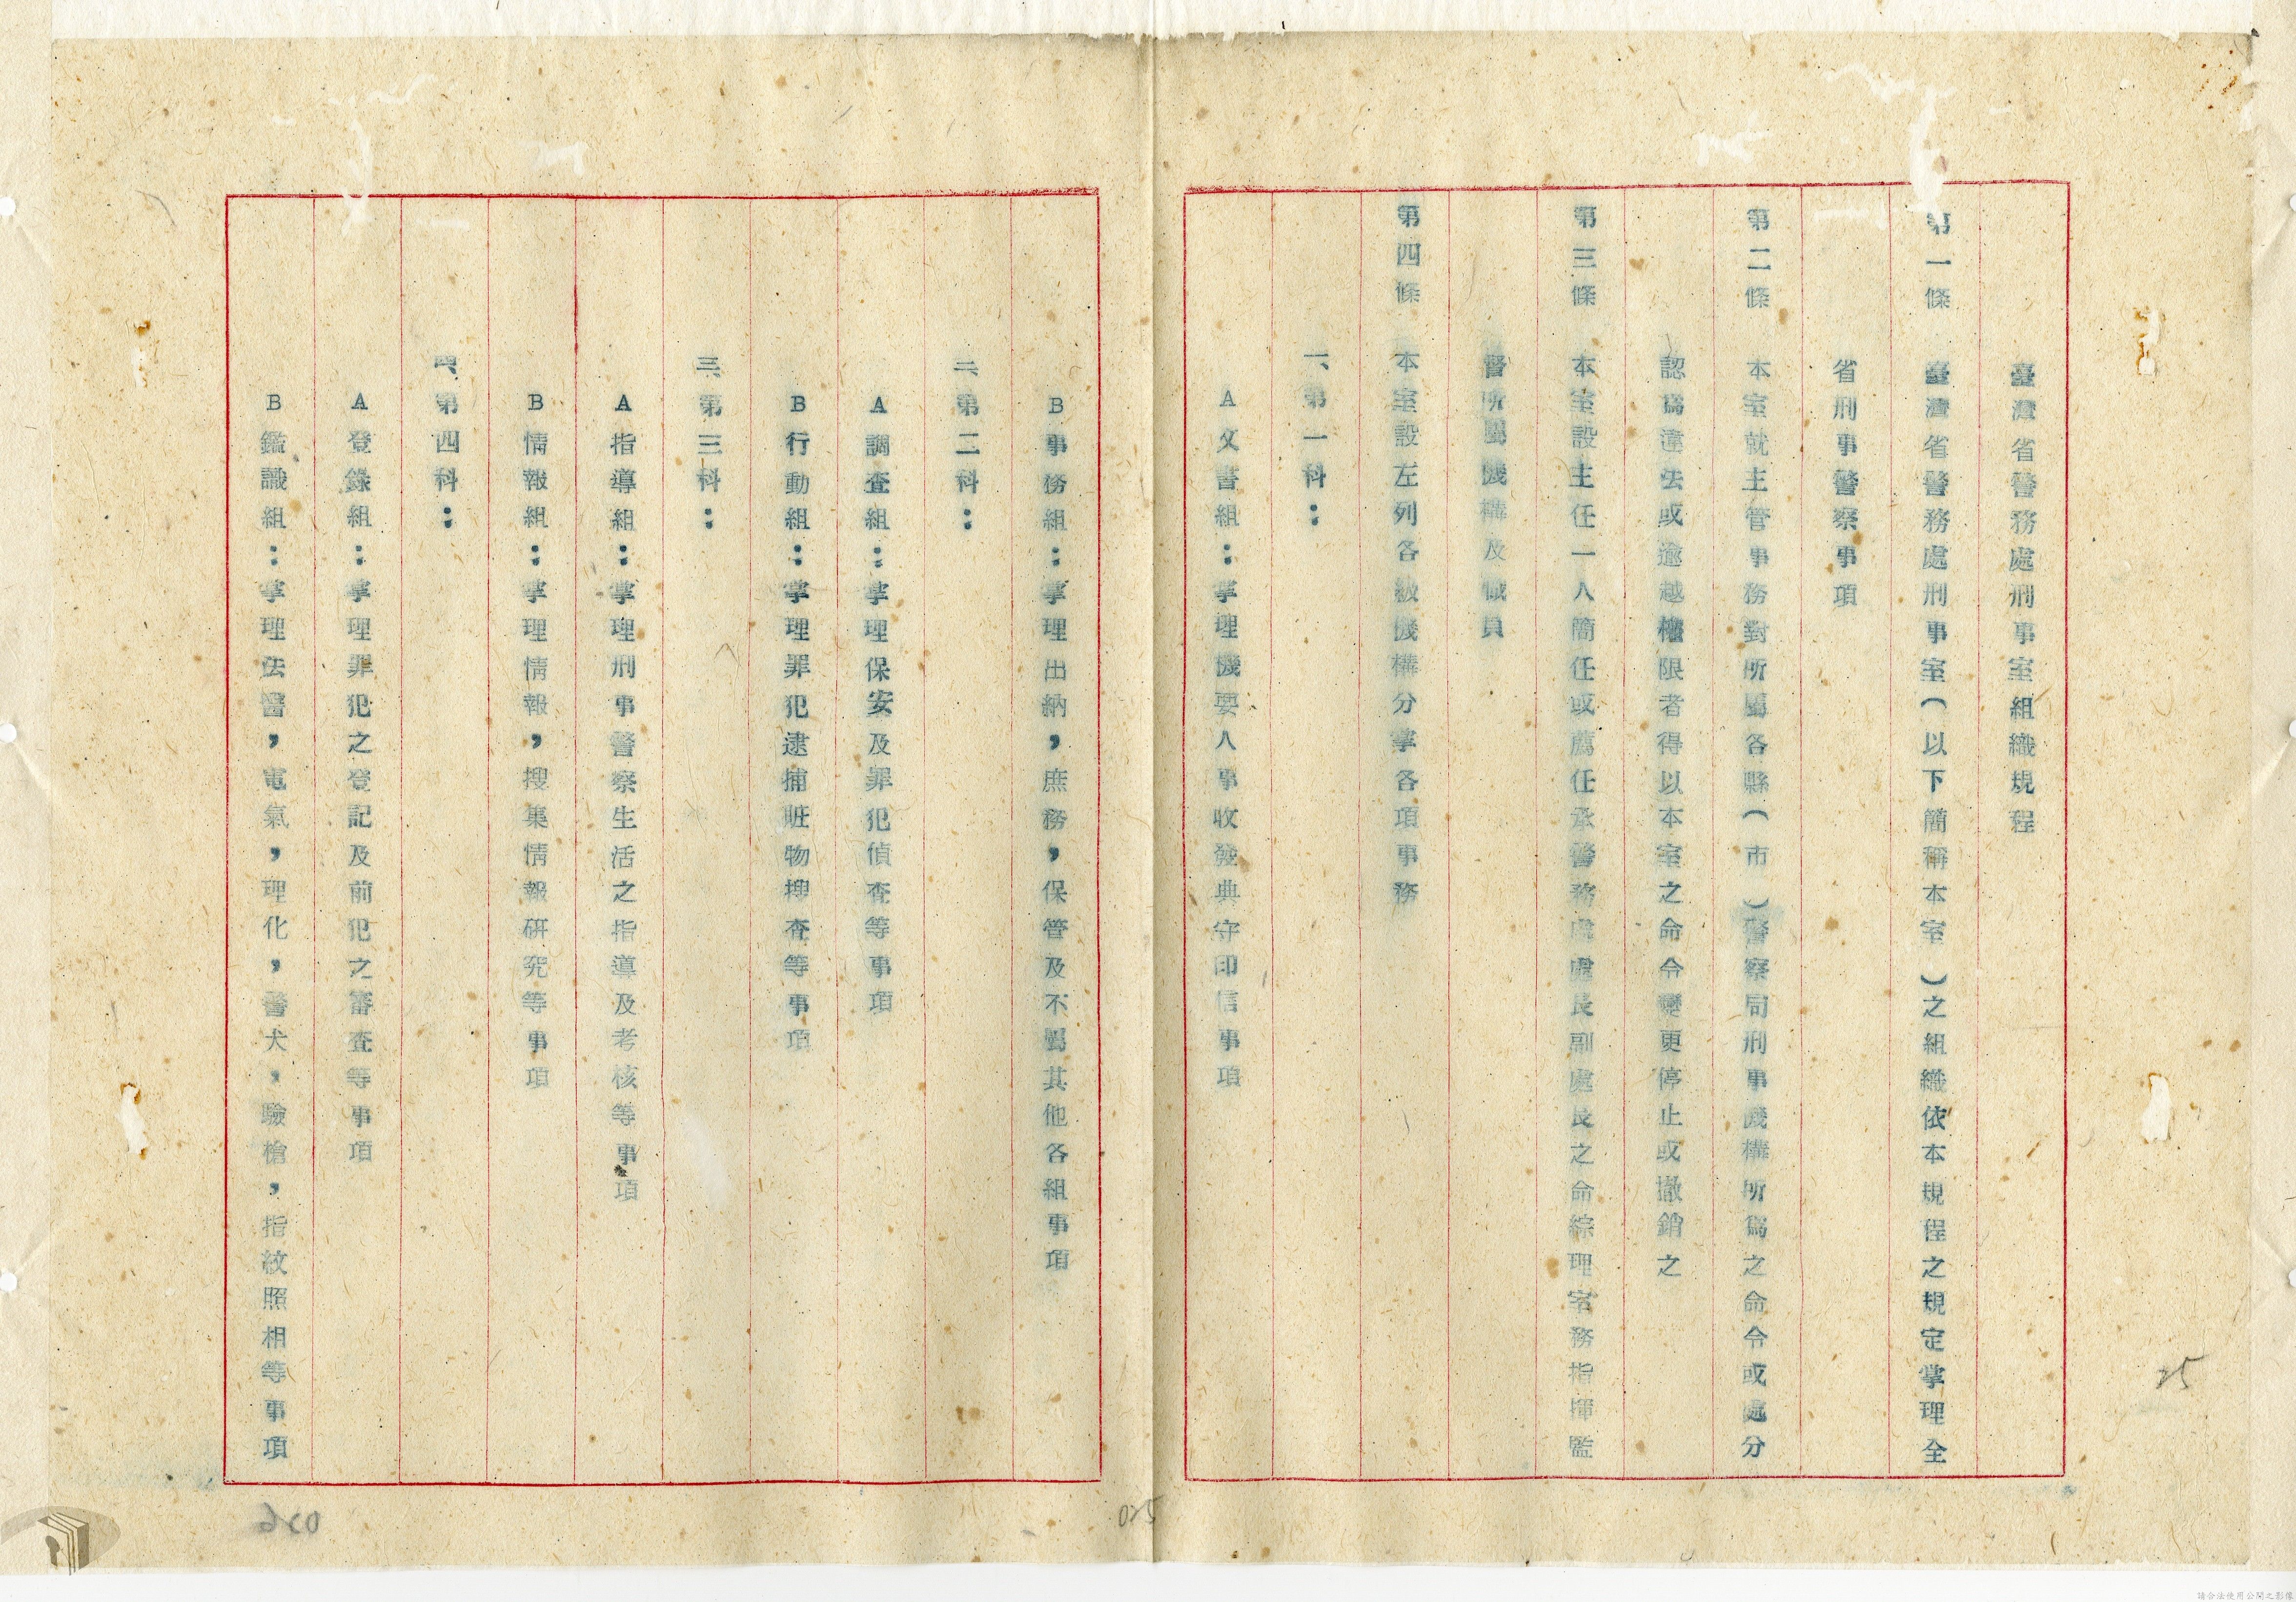 臺灣省警務處刑事室組織規程
第一條　臺灣省警務處刑事室(以下簡稱本室)之組織依本規程之規定掌理全
省刑事警察事項
第二條　本室就主管事務對所屬各縣(市)警察局刑事機構所爲之命令或處分
認爲違法或逾越權限者得以本室之命令變更停止或撤銷之
第三條　本室設主任一人簡任或薦任承警務處處長副處長之命綜理室務指揮監
督所屬機構及職員
第四條　本室設左列各級機構分掌各項事務
一、第一科：
A文書組：掌理機要人事收發典守印信事項
B事務組：掌理出納，庶務，保管及不屬其他各組事項
二、第二科：
A調查組：掌理保安及罪犯偵查等事項
B行動組：掌理罪犯逮捕賍物搜查等事項
三、第三科：
A指導組：掌理刑事警察生活之指導及考核等事項
B情報組：掌理情報，搜集情報研究等事項
四、第四科：
A登錄組：掌理罪犯之登記及前犯之審查等事項
B鑑識組：掌理法醫，電氣，理化，警犬，驗槍，指紋照相等事項
25
025
026
請合法使用公開之影像